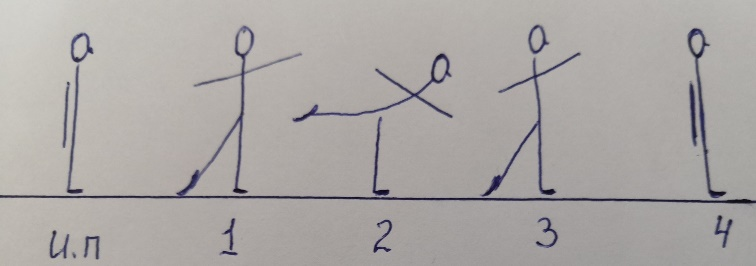 и.п 1 2 3 4